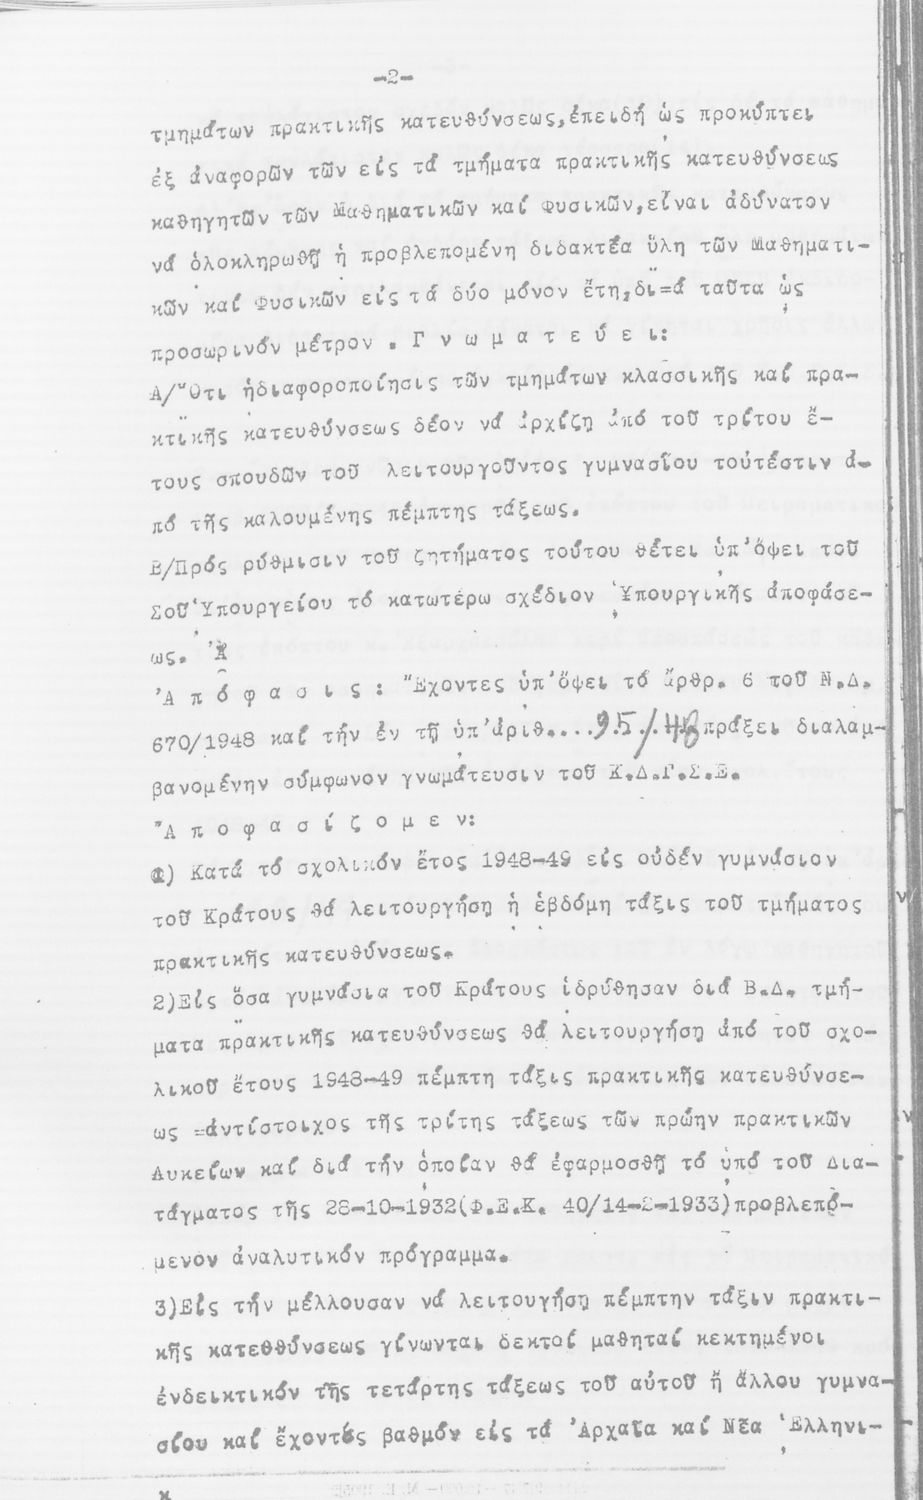 -2-
τμημάτων πρακτικῆς κατευθύνσεως,ἐπειδή ὡς προκύπτει
ἐξ ἀναφορῶν τῶν εἰς τά τμήματα πρακτικῆς κατευθύνσεως
καθηγητῶν τῶν Μαθηματικῶν καί Φυσικῶν,εἶναι ἀδύνατον
νά ὁλοκληρωθῇ ἡ προβλεπομένη διδακτέα ὕλη τῶν Μαθηματι-
κῶν καί Φυσικῶν εἰς τά δύο μόνον ἔτη,δι=ἅ ταῦτα ὡς
προσωρινόν μέτρον . Γ ν ω μ α τ ε ύ ε ι:
Α/"Οτι ἡδιαφοροποίησις τῶν τμημάτων κλασσικῆς καί πρα-
κτικῆς κατευθύνσεως δέον νά ἀρχίζῃ ἀπό τοῦ τρίτου ἔ-
τους σπουδῶν τοῦ λειτουργοῦντος γυμνασίου τοὐτέστιν ἀ-
πό τῆς καλουμένης πέμπτης τάξεως.
Β/Πρός ρύθμισιν τοῦ ζητήματος τούτου θέτει ὑπ'ὄψει τοῦ
Σοῦ Ὑπουργείου τό κατωτέρω σχέδιον Ὑπουργικῆς ἀποφάσε-
ως.
Ἀ π ό φ α σ ι ς : "Εχοντες ὑπ'ὄψει τό ἄρθρ. 6 τοῦ Ν.Δ.
670/1948 καί τήν ἐν τῇ ὑπ'ἀριθ....95/48πράξει διαλαμ-
βανομένην σύμφωνον γνωμάτευσιν τοῦ Κ.Δ.Γ.Σ.Ε.
Ἀ π ο φ α σ ί ζ ο μ ε ν:
1) Κατά τό σχολικόν ἔτος 1948-49 εἰς οὐδέν γυμνάσιον
τοῦ Κράτους θά λειτουργήσῃ ἡ ἑβδόμη τάξις τοῦ τμήματος
πρακτικῆς κατευθύνσεως.
2)Εἰς ὅσα γυμνάσια τοῦ Κράτους ἱδρύθησαν διά Β.Δ. τμή-
ματα πρακτικῆς κατευθύνσεως θά λειτουργήσῃ ἀπό τοῦ σχο-
λικοῦ ἔτους 1948-49 πέμπτη τάξις πρακτικῆς κατευθύνσε-
ως =ἀντίστοιχος τῆς τρίτης τάξεως τῶν πρώην πρακτικῶν
Λυκείων καί διά τήν ὁποίαν θά ἐφαρμοσθῇ τό ὑπό τοῦ Δια-
τάγματος τῆς 28-10-1932(Φ.Ε.Κ. 40/14-2-1933)προβλεπό-
μενον ἀναλυτικόν πρόγραμμα.
3)Εἰς τήν μέλλουσαν νά λειτουγήσῃ πέμπτην τάξιν πρακτι-
κῆς κατεθθύνσεως γίνωνται δεκτοί μαθηταί κεκτημένοι
ἐνδεικτικόν τῆς τετάρτης τάξεως τοῦ αὐτοῦ ἤ ἄλλου γυμνα-
σίου καί ἔχοντές βαθμόν εἰς τά Ἀρχαῖα καί Νέα Ἑλληνι-